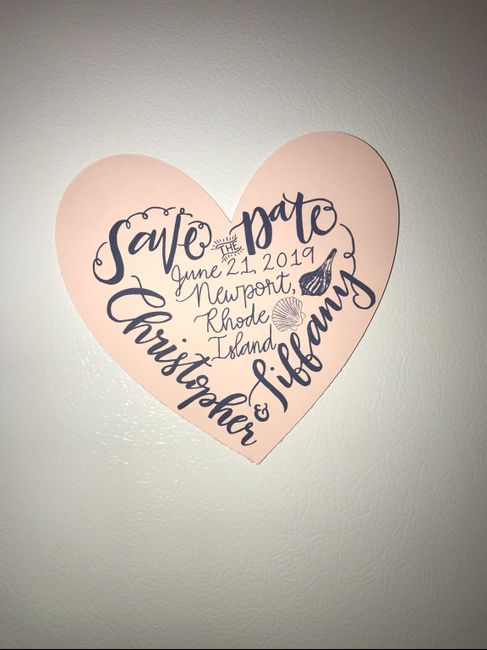 Save THE Date
June 21, 2019
Newport,
Rhode
Island
Christopher
& Tiffany